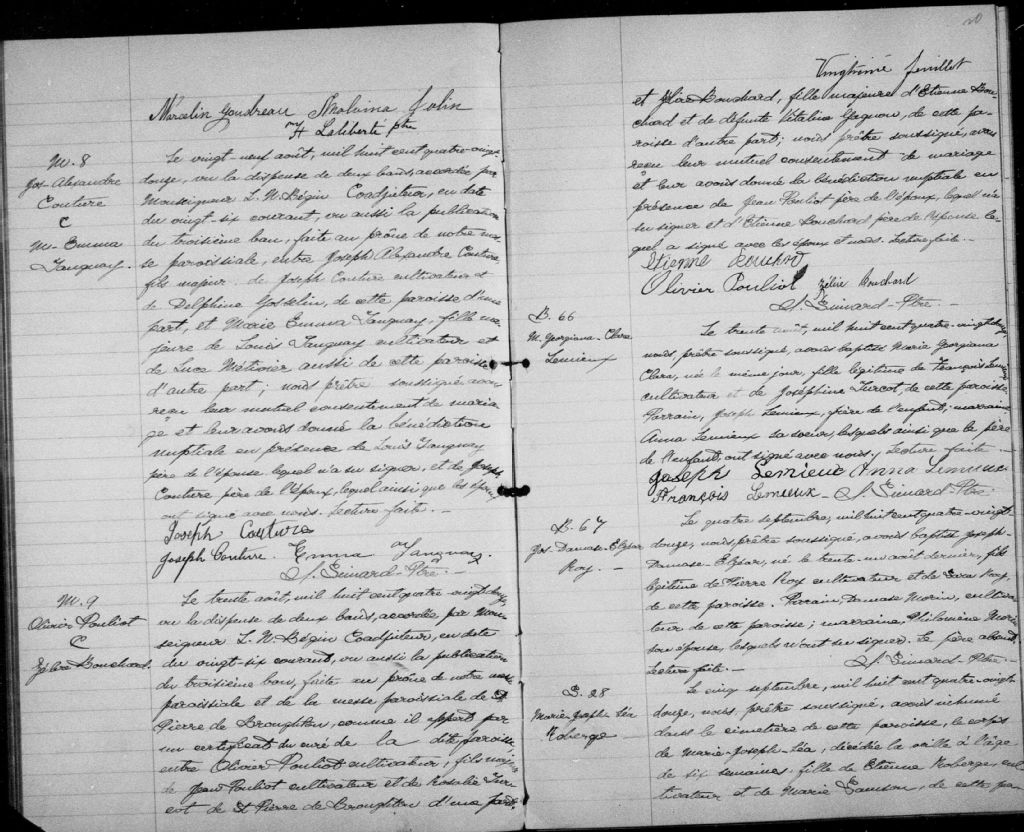 Marcelin Goudreau Malvina Folin
H Laliberté ptre
M. 8
Jos. Alexandre
Couture
C
M. Emma
Tanguay.
Le vingt-neuf août, mil huit cent quatre-vingt-
douze, vu la dispense de deux bans, accordée par
Monseigneur L. N. Bégin Coadjuteur, en date
du vingt-six courant, vu aussi la publication
du troisième ban, faite au prône de notre mes-
se paroissiale, entre Joseph Alexandre Couture
fils majeur de Joseph Couture cultivateur et
de Delphine Gosselin, de cette paroisse d'une
part, et Marie Emma Tanguay, fille ma-
jeure de Louis Tanguay cultivateur et
de Luce Métivier aussi de cette paroisse
d'autre part; nous prêtre soussigné avons
reçu leur mutuel consentement de maria-
ge et leur avons donné la bénédiction
nuptiale en présence de Louis Tanguay
père de l'épouse lequel n'a su signer, et de Joseph
Couture père de l'époux, lequel ainsi que les époux
ont signé avec nous. Lecture faite. -
Joseph Couture
Joseph Couture. Emma Tanguay
J. Simard-Ptre. -
M. 9
Olivier Pouliot
C
Bouchard.
Le trente août, mil huit cent quatre-vingt-douze,
vu la dispense de deux bans, accordée par Mon-
seigneur L. N. Bégin Coadjuteur, en date
du vingt-six courant, vu aussi la publication
du troisième ban, faite au prône de notre messe
paroissiale et de la messe paroissiale de St
Pierre de Broughton, comme il appert par
un certificat du curé de la dite paroisse
entre Olivier Pouliot cultivateur, fils majeur
de Jean Pouliot cultivateur et de Rosalie Tur-
cot de St Pierre de Broughton d'une part
20
Vingtième feuillet
et Bouchard, fille majeure d'Etienne Bou-
chard et de défunte Vitaline Gagnon, de cette pa-
roisse d'autre part; nous prêtre soussigné, avons
reçu leur mutuel consentement de mariage
et leur avons donné la bénédiction nuptiale en
présence de Jean Pouliot père de l'époux, lequel n'a
su signer et d'Etienne Bouchard père de l'épouse le-
quel a signé avec les époux et nous. Lecture faite. -
Etienne Bouchard
Olivier Pouliot Zélia Bouchard
J. Simard-Ptre -
B. 66
M. Georgiana-Clara
Lemieux
Le trente août, mil huit cent quatre-vingt-douze,
nous, prêtre soussigné, avons baptisé Marie Georgiana
Clara, née le même jour, fille légitime de François Lemieux
cultivateur et de Joséphine Turcot, de cette paroisse.
Parrain, Joseph Lemieux, frère de l'enfant; marraine
Anna Lemieux sa soeur, lesquels ainsi que le père
de l'enfant, ont signé avec nous. Lecture faite -
Joseph Lemieux Anna Lemieux
François Lemieux - J. Simard-Ptre -
B. 67
Jos. Damase-Elzéar
Roy. -
Le quatre septembre, mil huit cent quatre-vingt-
douze, nous, prêtre soussigné, avons baptisé Joseph-
Damase-Elzéar, né le trente-un août dernier, fils
légitime de Pierre Roy cultivateur et de Roy,
de cette paroisse. Parrain, Damase Morin, cultiva-
teur de cette paroisse; marraine, Philomène
son épouse, lesquels n'ont su signer. Le père absent.
Lecture faite. - J. Simard-Ptre -
S. 28
Marie-Joseph-Léa
Roberge
Le cinq septembre, mil huit cent quatre-vingt-
douze, nous, prêtre soussigné, avons inhumé
dans le cimetière de cette paroisse, le corps
de Marie-Joseph-Léa, décédée la veille à l'âge
de six semaines, fille de Etienne Roberge, cul-
tivateur et de Marie Samson, de cette pa-